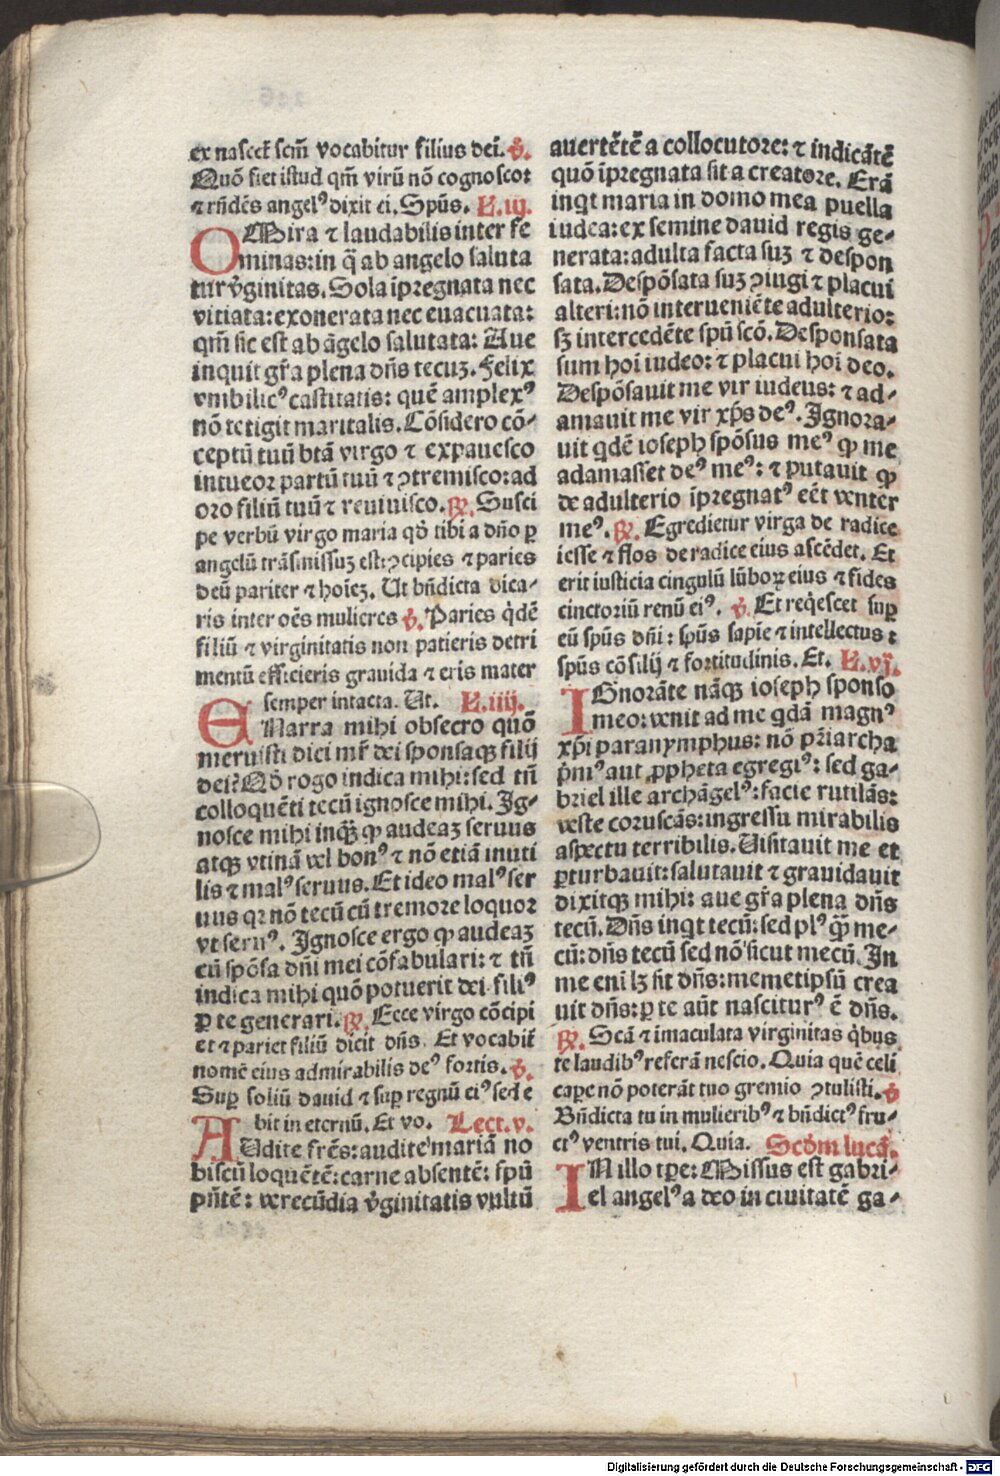 ex nascet̄ scm̄ vocabitur filius dei. v̄.
Quō fiet istud qm̄ virū nō cognosco:
⁊ rn̄dēs angelꝰ dixit ei. Spūs. L.iij.
OMira ⁊ laudabilis inter fe
minas: in q̄ ab angelo saluta
tur v̄ginitas. Sola īpregnata nec
vitiata: exonerata nec euacuata:
qm̄ sic est ab āgelo salutata: Aue
inquit gr̄a plena dn̄s tecuꝫ. Felix
vmbilicꝰ castitatis: quē amplexꝰ
nō tetigit maritalis. Cōsidero cō-
ceptū tuū btā virgo ⁊ expauesco
intueor partū tuū ⁊ ꝯtremisco: ad
oro filiū tuū ⁊ reuiuisco. ℟. Susci
pe verbū virgo maria qd̄ tibi a dn̄o ꝑ
angelū trāsmissuꝫ est: ꝯcipies ⁊ paries
deū pariter ⁊ hoīeꝫ. Ut bn̄dicta dica-
ris inter oēs mulieres v̄. Paries q̇dē
filiū ⁊ virginitatis non patieris detri
mentū efficieris grauida ⁊ eris mater
semper intacta. Ut. L.iiij.
ENarra mihi obsecro quō
meruisti dici mr̄ dei sponsaqꝫ filij
dei? Qd̄ rogo indica mihi: sed tn̄
colloquēti tecū ignosce mihi. Ig-
nosce mihi inqꝫ̄ ꝙ audeaꝫ seruus
atqꝫ vtinā vel bonꝰ ⁊ nō etiā inuti
lis ⁊ malꝰ seruus. Et ideo malꝰ ser
uus qꝛ nō tecū cū tremore loquor
vt seruꝰ. Ignosce ergo ꝙ audeaꝫ
cū spōsa dn̄i mei cōfabulari: ⁊ tn̄
indica mihi quō potuerit dei filiꝰ
ꝑ te generari. ℟. Ecce virgo cōcipi
et ⁊ pariet filiū dicit dn̄s. Et vocabit̄
nomē eius admirabilis deꝰ fortis. v̄.
Suꝑ soliū dauid ⁊ suꝑ regnū eiꝰ sede
bit in eternū. Et vo. Lect. v.
AUdite frēs: audite mariā no
biscū loquētē: carne absentē: spū
pn̄tē: verecūdia v̄ginitatis vultū
auertētē a collocutore: ⁊ indicātē
quō īpregnata sit a creatore. Erā
inqt maria in domo mea puella
iudea: ex semine dauid regis ge-
nerata: adulta facta suꝫ ⁊ despon
sata. Despōsata suꝫ ꝯiugi ⁊ placui
alteri: nō interueniēte adulterio:
sꝫ intercedēte spū scō. Desponsata
sum hoī iudeo: ⁊ placui hoī deo.
Despōsauit me vir iudeus: ⁊ ad-
amauit me vir xp̄s deꝰ. Ignora-
uit qdē ioseph spōsus meꝰ ꝙ me
adamasset deꝰ meꝰ: ⁊ putauit ꝙ
de adulterio īpregnatꝰ eēt venter
meꝰ. ℟. Egredietur virga de radice
iesse ⁊ flos de radice eius ascēdet. Et
erit iusticia cingulū lūboꝝ eius ⁊ fides
cinctoriū renū eiꝰ. v̄. Et reqescet suꝑ
eū spūs dn̄i: spūs sapīe ⁊ intellectus:
spūs cōsilij ⁊ fortitudinis. Et. L.vj.
IGnorāte nāqꝫ ioseph sponso
meo: venit ad me qdā magnꝰ
xp̄i paranymphus: nō pr̄iarcha
pm̄ꝰ aut ꝓpheta egregiꝰ: sed ga-
briel ille archāgelꝰ: facie rutilās:
veste coruscās: ingressu mirabilis
aspectu terribilis. Uisitauit me et
ꝑturbauit: salutauit ⁊ grauidauit
dixitqꝫ mihi: aue gr̄a plena dn̄s
tecū. Dn̄s inqt tecū: sed plꝰ qꝫ̄ me-
cū: dn̄s tecū sed nō sicut mecū. In
me enī lꝫ sit dn̄s: memetipsū crea
uit dn̄s: ꝑ te aūt nasciturꝰ ē dn̄s.
℟. Scā ⁊ imaculata virginitas qbus
te laudibꝰ referā nescio. Quia quē celi
caꝑe nō poterāt tuo gremio ꝯtulisti. v̄
Bn̄dicta tu in mulieribꝰ ⁊ bn̄dictꝰ fru-
ctꝰ ventris tui. Quia. Scd̄m lucā.
IN illo tꝑe: Missus est gabri-
el angelꝰ a deo in ciuitatē ga-
Digitalisierung gefördert durch die Deutsche Forschungsgemeinschaft - DFG